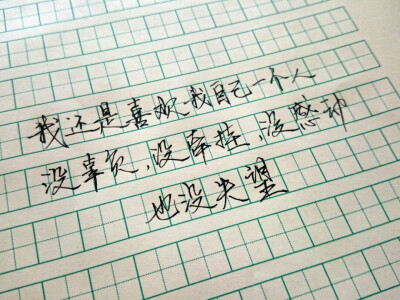 我还是喜欢我自己一个人
没辜负，没牵挂，没感动
也没失望